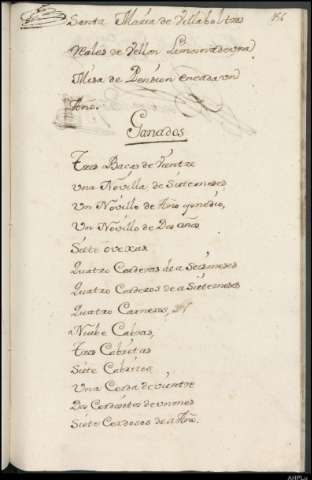 Santa Maria de Villabol tres
Reales de Vellon Limosna de una
Misa de Pension en cada un
Año.
Ganados
Tres Bacas de Vientre
Una Novilla de Siete meses
Un Novillo de Año y medio,
Un Novillo de Dos años
Siete ovexas
Quatro Corderas de a Seis meses
Quatro Corderos de a Siete meses
Quatro Carneros,
Nuebe Cabras,
Tres Cabritas
Siete Cabritos
Una Cerda de vientre
Dos Cerditos de un mes
Siete Cerdosos de a Año.
AHPLu